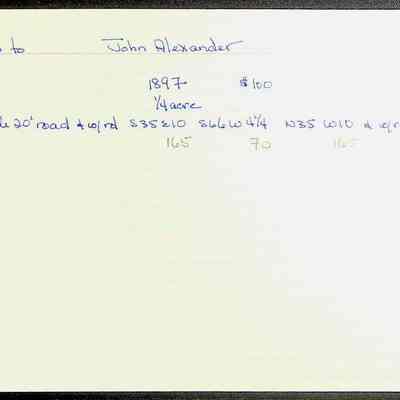 to John Alexander
1897 $100
1/4 acre
20' road & w/rd S35E10 S66W 4 1/4 N35 W10 & w/r
165 70 165